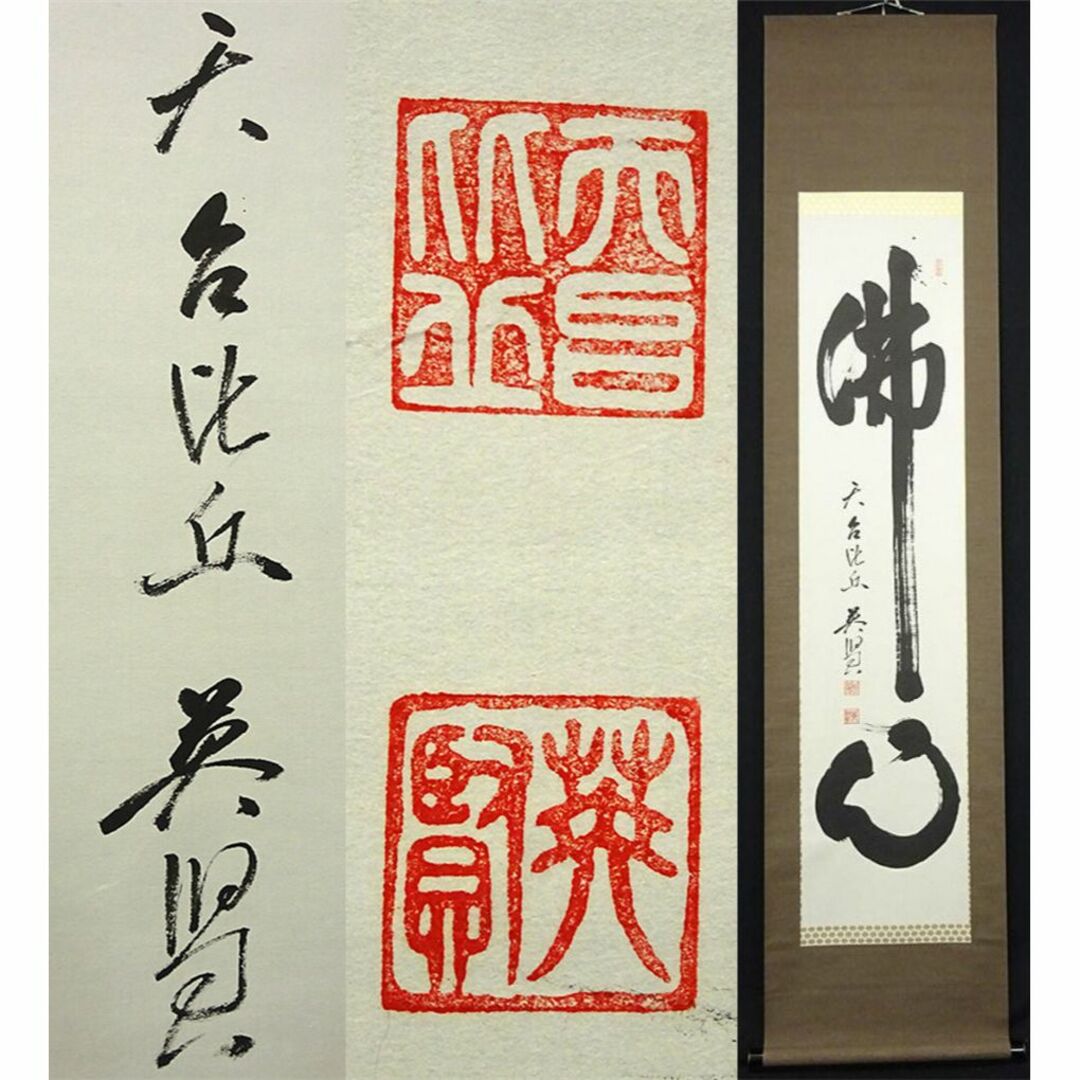 天台比丘 英賢
天台
比丘
英
賢
佛心
天台比丘 英賢